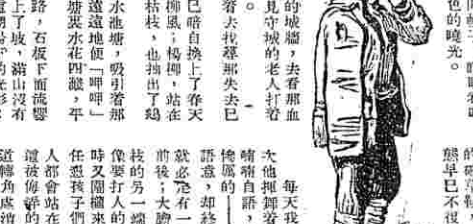 色的曉光。
的城牆，去看那血
見守城的老人打着
着去找尋那失去已
已暗自換上了春天
柳風；楊柳，站在
枯枝，也抽出了鵝
水池塘，吸引着那
遠遠地便「呷呷」
塘裏水花四濺，平
路，石板下面流響
上了坡，滿山沒有
熊早已不復
每天我
次他揮舞着
喃喃自語，
慘厲的——
語意，却終
就必是有一
前後；大膽
枝的另一端
像要打人的
時又開欄來
任憑孩子們
人都會站在
還被侮弄的
道轉角處消